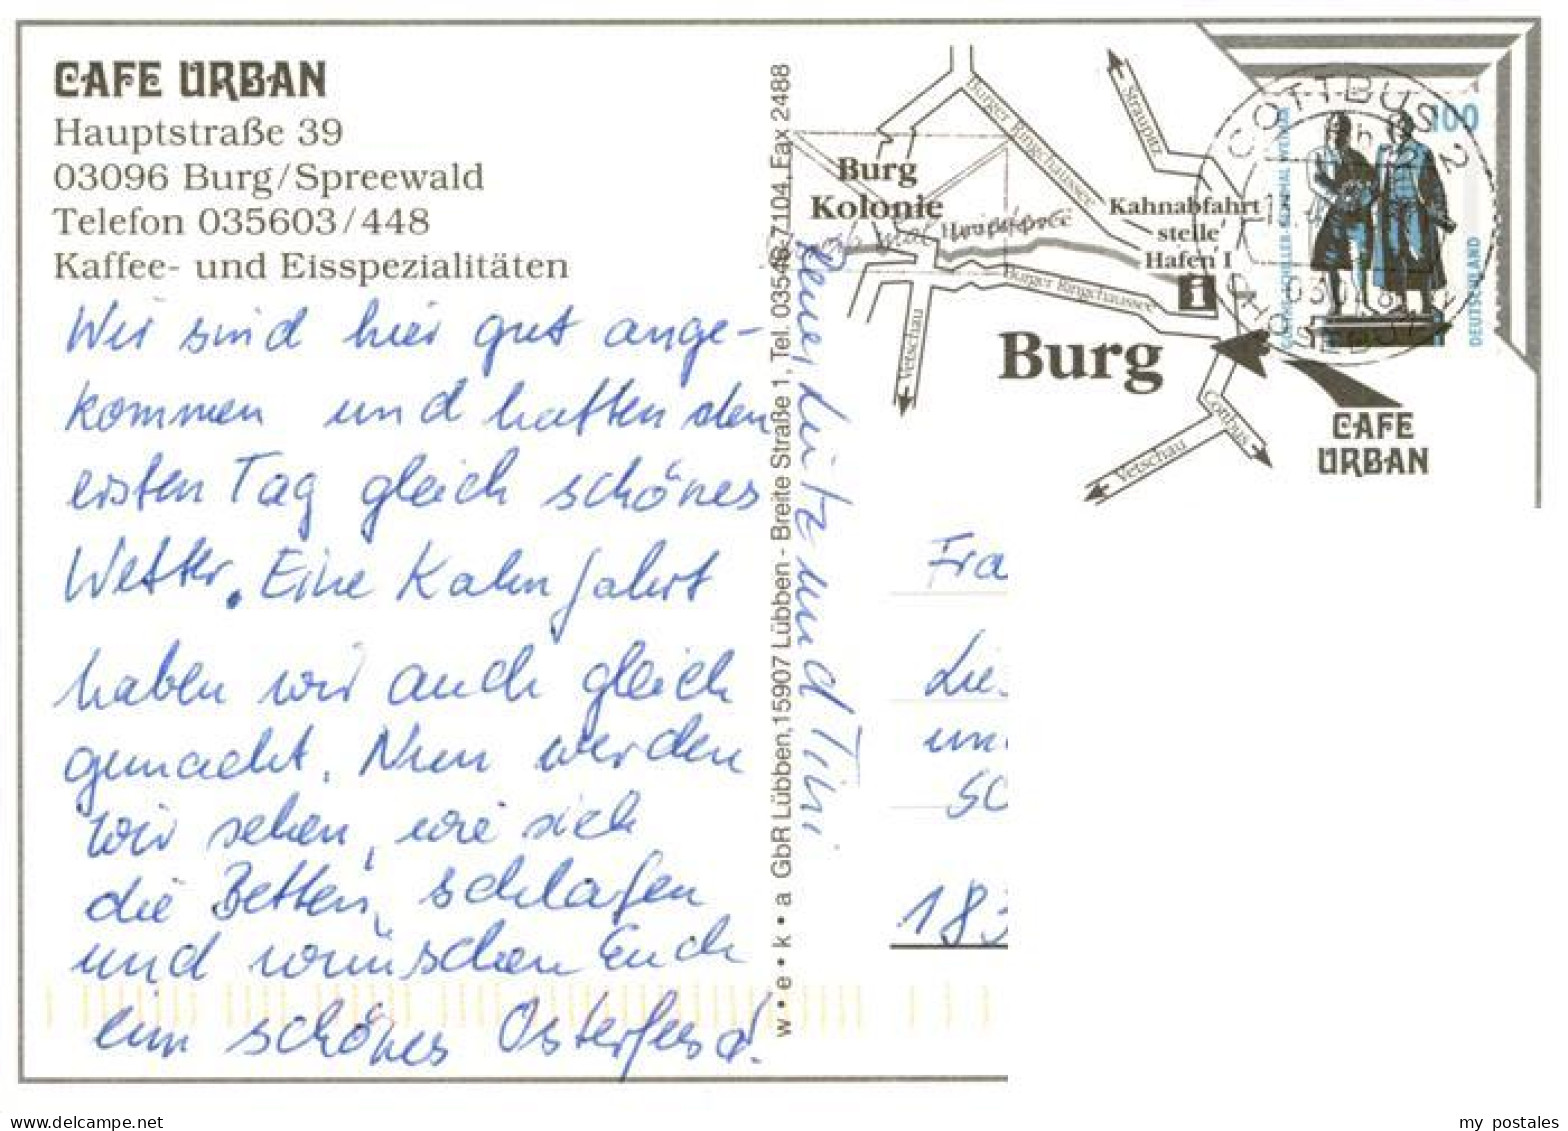 CAFE URBAN
Hauptstraße 39
03096 Burg/Spreewald
Telefon 035603/448
Kaffee- und Eisspezialitäten
Wir sind hier gut ange-
kommen und hatten den
ersten Tag gleich schönes
Wetter. Eine Kahnfahrt
haben wir auch gleich
gemacht. Nun werden
wir sehen, wie sich
die Betten schlafen
und wünschen Euch
ein schönes Osterfest.
w • e • k • a GbR Lübben, 15907 Lübben - Breite Straße 1, Tel. 03546-7104, Fax 2488
Lutz und Tini
Burg
Kolonie
Burger Ringchaussee
Straupitz
Kahnabfahrt
stelle
Hafen I
Hauptspree
Burger Ringchaussee
i
Vetschau
Burg
Vetschau
Cottbus
CAFE
URBAN
COTTBUS 2
100
GOETHE-SCHILLER-DENKMAL WEIMAR
DEUTSCHLAND
Fra
Lie
un
sc
183
my postales